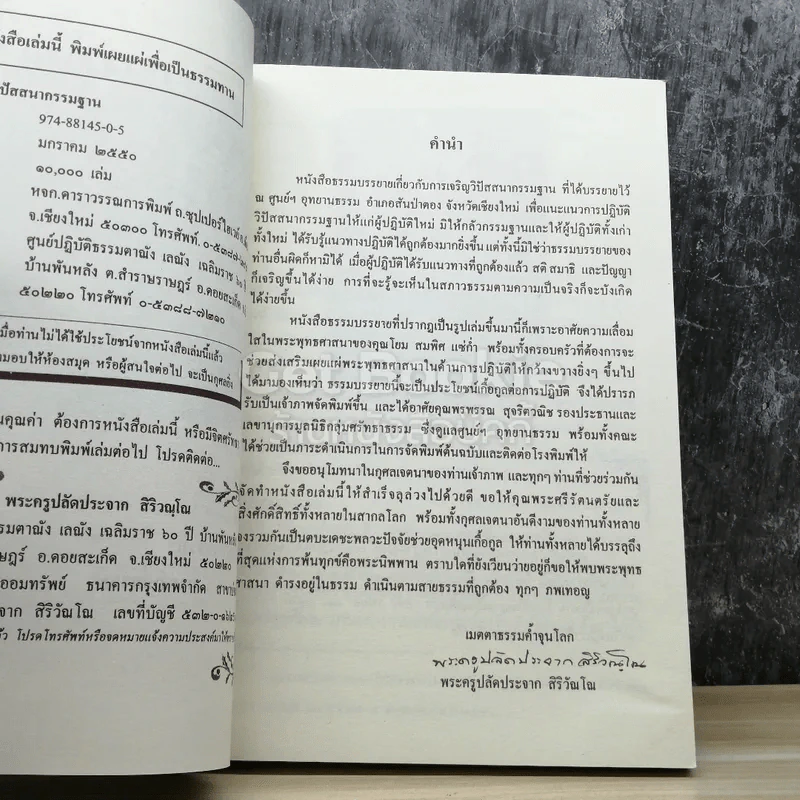 งสือเล่มนี้ พิมพ์เผยแผ่เพื่อเป็นธรรมทาน
ปัสสนากรรมฐาน
974-88145-0-5
มกราคม ๒๕๕๐
๑๐,๐๐๐ เล่ม
หจก.ดาราวรรณการพิมพ์ ถ.ซุปเปอร์ไฮเวย์
จ.เชียงใหม่ ๕๐๓๐๐ โทรศัพท์.
ศูนย์ปฏิบัติธรรมตาณัง เลณัง เฉลิมราช ๖๐ ปี
บ้านพันหลัง ต.สำราษราษฎร์ อ.ดอยสะเก็ด
๕๐๒๒๐ โทรศัพท์ ๐-๕๓๘๘-๗๒๑๐
มื่อท่านไม่ได้ใช้ประโยชน์จากหนังสือเล่มนี้แล้ว
ามอบให้ห้องสมุด หรือผู้สนใจต่อไป จะเป็นกุศลยิ่ง
นคุณค่า ต้องการหนังสือเล่มนี้ หรือมีจิตศรัทธา
การสมทบพิมพ์เล่มต่อไป โปรดติดต่อ...
พระครูปลัดประจาก สิริวณฺโณ
รมตาณัง เลณัง เฉลิมราช ๖๐ ปี บ้านพันหลัง
ษฎร์ อ.ดอยสะเก็ด จ.เชียงใหม่ ๕๐๒๒๐
ออมทรัพย์ ธนาคารกรุงเทพจำกัด
จาก สิริวัณโณ เลขที่บัญชี
ว โปรดโทรศัพท์หรือจดหมายแจ้งความประสงค์มาให้
คำนำ
หนังสือธรรมบรรยายเกี่ยวกับการเจริญวิปัสสนากรรมฐาน ที่ได้บรรยายไว้
ณ ศูนย์ฯ อุทยานธรรม อำเภอสันป่าตอง จังหวัดเชียงใหม่ เพื่อแนะแนวการปฏิบัติ
วิปัสสนากรรมฐานให้แก่ผู้ปฏิบัติใหม่ มิให้กลัวกรรมฐานและให้ผู้ปฏิบัติทั้งเก่า
ทั้งใหม่ ได้รับรู้แนวทางปฏิบัติได้ถูกต้องมากยิ่งขึ้น แต่ทั้งนี้มิใช่ว่าธรรมบรรยายของ
ท่านอื่นผิดก็หามิได้ เมื่อผู้ปฏิบัติได้รับแนวทางที่ถูกต้องแล้ว สติ สมาธิ และปัญญา
ก็เจริญขึ้นได้ง่าย การที่จะรู้จะเห็นในสภาวธรรมตามความเป็นจริงก็จะบังเกิด
ได้ง่ายขึ้น
หนังสือธรรมบรรยายที่ปรากฏเป็นรูปเล่มขึ้นมานี้ก็เพราะอาศัยความเลื่อม
ใสในพระพุทธศาสนาของคุณโยม สมพิศ แซ่ก่ำ พร้อมทั้งครอบครัวที่ต้องการจะ
ช่วยส่งเสริมเผยแผ่พระพุทธศาสนาในด้านการปฏิบัติให้กว้างขวางยิ่งๆ ขึ้นไป
ได้มามองเห็นว่า ธรรมบรรยายนี้จะเป็นประโยชน์เกื้อกูลต่อการปฏิบัติ จึงได้ปรารภ
รับเป็นเจ้าภาพจัดพิมพ์ขึ้น และได้อาศัยคุณพรพรรณ สุจริตวณิช รองประธานและ
เลขานุการมูลนิธิกลุ่มศรัทธาธรรม ซึ่งดูแลศูนย์ฯ อุทยานธรรม พร้อมทั้งคณะ
ได้ช่วยเป็นภาระดำเนินการในการจัดพิมพ์ต้นฉบับและติดต่อโรงพิมพ์ให้
จึงขออนุโมทนาในกุศลเจตนาของท่านเจ้าภาพ และทุกๆ ท่านที่ช่วยร่วมกัน
จัดทำหนังสือเล่มนี้ให้สำเร็จลุล่วงไปด้วยดี ขอให้คุณพระศรีรัตนตรัยและ
สิ่งศักดิ์สิทธิ์ทั้งหลายในสากลโลก พร้อมทั้งกุศลเจตนาอันดีงามของท่านทั้งหลาย
จงรวมกันเป็นตบะเดชะพลวะปัจจัยช่วยอุดหนุนเกื้อกูล ให้ท่านทั้งหลายได้บรรลุถึง
ที่สุดแห่งการพ้นทุกข์คือพระนิพพาน ตราบใดที่ยังเวียนว่ายอยู่ก็ขอให้พบพระพุทธ
ศาสนา ดำรงอยู่ในธรรม ดำเนินตามสายธรรมที่ถูกต้อง ทุกๆ ภพเทอญ
เมตตาธรรมค้ำจุนโลก
พระครูปลัดประจาก สิริวณฺโณ
พระครูปลัดประจาก สิริวัณโณ